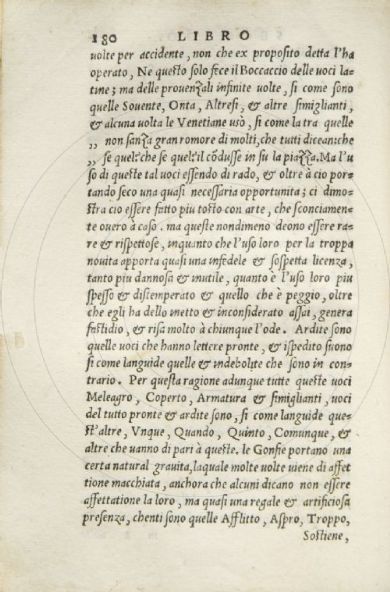 180 LIBRO
uolte per accidente, non che ex proposito detta l'ha
operato, Ne questo solo fece il Boccaccio delle uoci la-
tine; ma delle prouenzali infinite uolte, si come sono
quelle Souente, Onta, Altresi, & altre simiglianti,
& alcuna uolta le Venetiane usò, si come la tra quelle
,, non sanza gran romore di molti, che tutti diceano;che
,, se quel che se quel il cōdusse in su la piazza. Ma l'u-
so di queste tal uoci essendo di rado, & oltre à cio por-
tando seco una quasi necessaria opportunita; ci dimo-
stra cio essere fatto piu tosto con arte, che sconciamen-
te ouero à caso. ma queste nondimeno deono essere ra-
re & rispettose, inquanto che l'uso loro per la troppa
nouita apporta quasi una infedele & sospetta licenza,
tanto piu dannosa & inutile, quanto è l'uso loro piu
spesso & distemperato & quello che è peggio, oltre
che egli ha dello inetto & inconsiderato assai, genera
fastidio, & risa molto à chiunque l'ode. Ardite sono
quelle uoci che hanno lettere pronte, & ispedito suono
si come languide quelle & indebolite che sono in con-
trario. Per questa ragione adunque tutte queste uoci
Meleagro, Coperto, Armatura & simiglianti, uoci
del tutto pronte & ardite sono, si come languide que-
st'altre, Vnque, Quando, Quinto, Comunque, &
altre che uanno di pari à queste. le Gonfie portano una
certa natural grauita, laquale molte uolte uiene di affet
tione macchiata, anchora che alcuni dicano non essere
affettatione la loro, ma quasi una regale & artificiosa
presenza, chenti sono quelle Afflitto, Aspro, Troppo,
Sostiene,